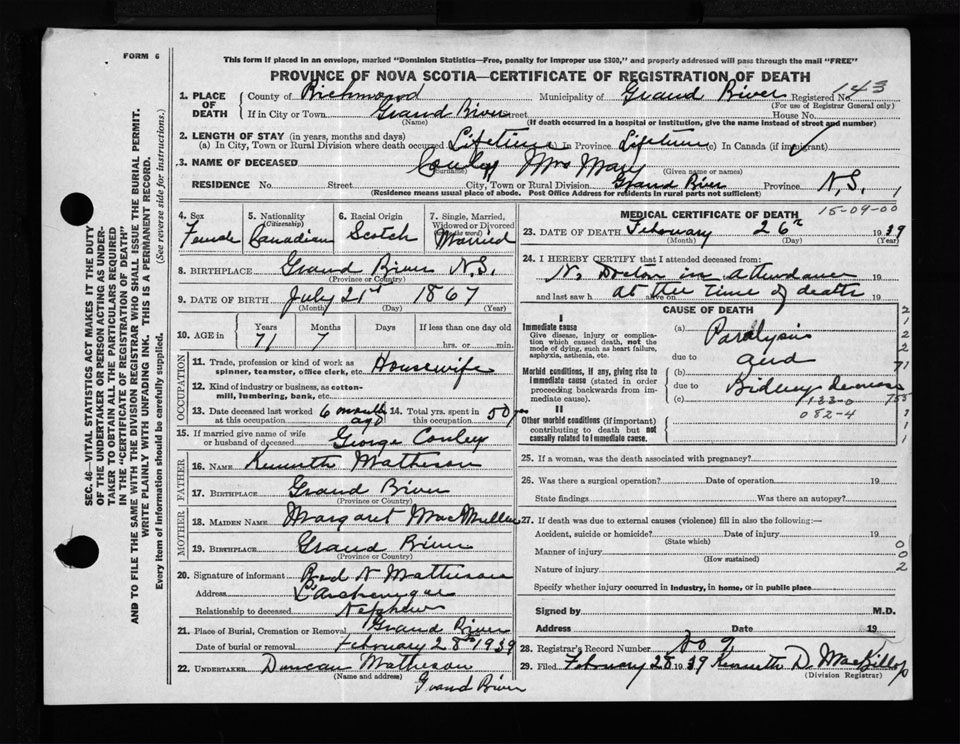 FORM 6
This form if placed in an envelope, marked "Dominion Statistics—Free, penalty for improper use $300," and properly addressed will pass through the mail "FREE"
PROVINCE OF NOVA SCOTIA—CERTIFICATE OF REGISTRATION OF DEATH
SEC. 46—VITAL STATISTICS ACT MAKES IT THE DUTY
OF THE UNDERTAKER OR PERSON ACTING AS UNDER-
TAKER TO OBTAIN ALL THE PARTICULARS REQUIRED
IN THE "CERTIFICATE OF REGISTRATION OF DEATH"
AND TO FILE THE SAME WITH THE DIVISION REGISTRAR WHO SHALL ISSUE THE BURIAL PERMIT.
WRITE PLAINLY WITH UNFADING INK. THIS IS A PERMANENT RECORD.
Every item of information should be carefully supplied. (See reverse side for instructions.)
1. PLACE OF DEATH County of Richmond Municipality of Grand River Registered No. 143
(For use of Registrar General only)
If in City or Town Grand River Street House No.
(Name) (If death occurred in a hospital or institution, give the name instead of street and number)
2. LENGTH OF STAY (in years, months and days)
(a) In City, Town or Rural Division where death occurred Lifetime In Province Lifetime (c) In Canada (if immigrant)
3. NAME OF DECEASED Conley Mrs Mary
(Surname) (Given name or names)
RESIDENCE No. Street City, Town or Rural Division Grand River Province N.S. 1
(Residence means usual place of abode. Post Office Address for residents in rural parts not sufficient)
4. Sex Female
5. Nationality (Citizenship) Canadian
6. Racial Origin Scotch
7. Single, Married, Widowed or Divorced (write the word) Married
8. BIRTHPLACE Grand River N.S.
(Province or Country)
9. DATE OF BIRTH July 21st 1867
(Month) (Day) (Year)
10. AGE in Years 71 Months 7 Days If less than one day old hrs. or min.
OCCUPATION
11. Trade, profession or kind of work as spinner, teamster, office clerk, etc. Housewife
12. Kind of industry or business, as cotton-mill, lumbering, bank, etc.
13. Date deceased last worked at this occupation 6 months ago 14. Total yrs. spent in this occupation 50 yrs
15. If married give name of wife or husband of deceased George Conley
FATHER
16. NAME Kenneth Matheson
17. BIRTHPLACE Grand River
(Province or Country)
MOTHER
18. MAIDEN NAME Margaret MacMullen
19. BIRTHPLACE Grand River
(Province or Country)
20. Signature of informant Rod N Matheson
Address L'Archeveque
Relationship to deceased Nephew
21. Place of Burial, Cremation or Removal Grand River
Date of burial or removal February 28th 1939
22. UNDERTAKER Duncan Matheson
(Name and address)
Grand River
MEDICAL CERTIFICATE OF DEATH
15-09-00
23. DATE OF DEATH February 26th 1939
(Month) (Day) (Year)
24. I HEREBY CERTIFY that I attended deceased from:
No Doctor in attendance 19
and last saw h alive on at the time of death 19
CAUSE OF DEATH
I
Immediate cause (a) Paralysis
Give disease, injury or complication which caused death, not the mode of dying, such as heart failure, asphyxia, asthenia, etc.
due to and
Morbid conditions, if any, giving rise to immediate cause (stated in order proceeding backwards from immediate cause). (b)
due to Kidney disease
(c) 133-0
082-4
II
Other morbid conditions (if important) contributing to death but not causally related to immediate cause.
25. If a woman, was the death associated with pregnancy?
26. Was there a surgical operation? Date of operation 19
State findings Was there an autopsy?
27. If death was due to external causes (violence) fill in also the following:—
Accident, suicide or homicide? Date of injury 19
(State which)
Manner of injury
(How sustained)
Nature of injury
0
0
2
Specify whether injury occurred in industry, in home, or in public place
Signed by M.D.
Address Date 19
28. Registrar's Record Number No 9
29. Filed February 28 1939 Kenneth D. MacKillop
(Division Registrar)